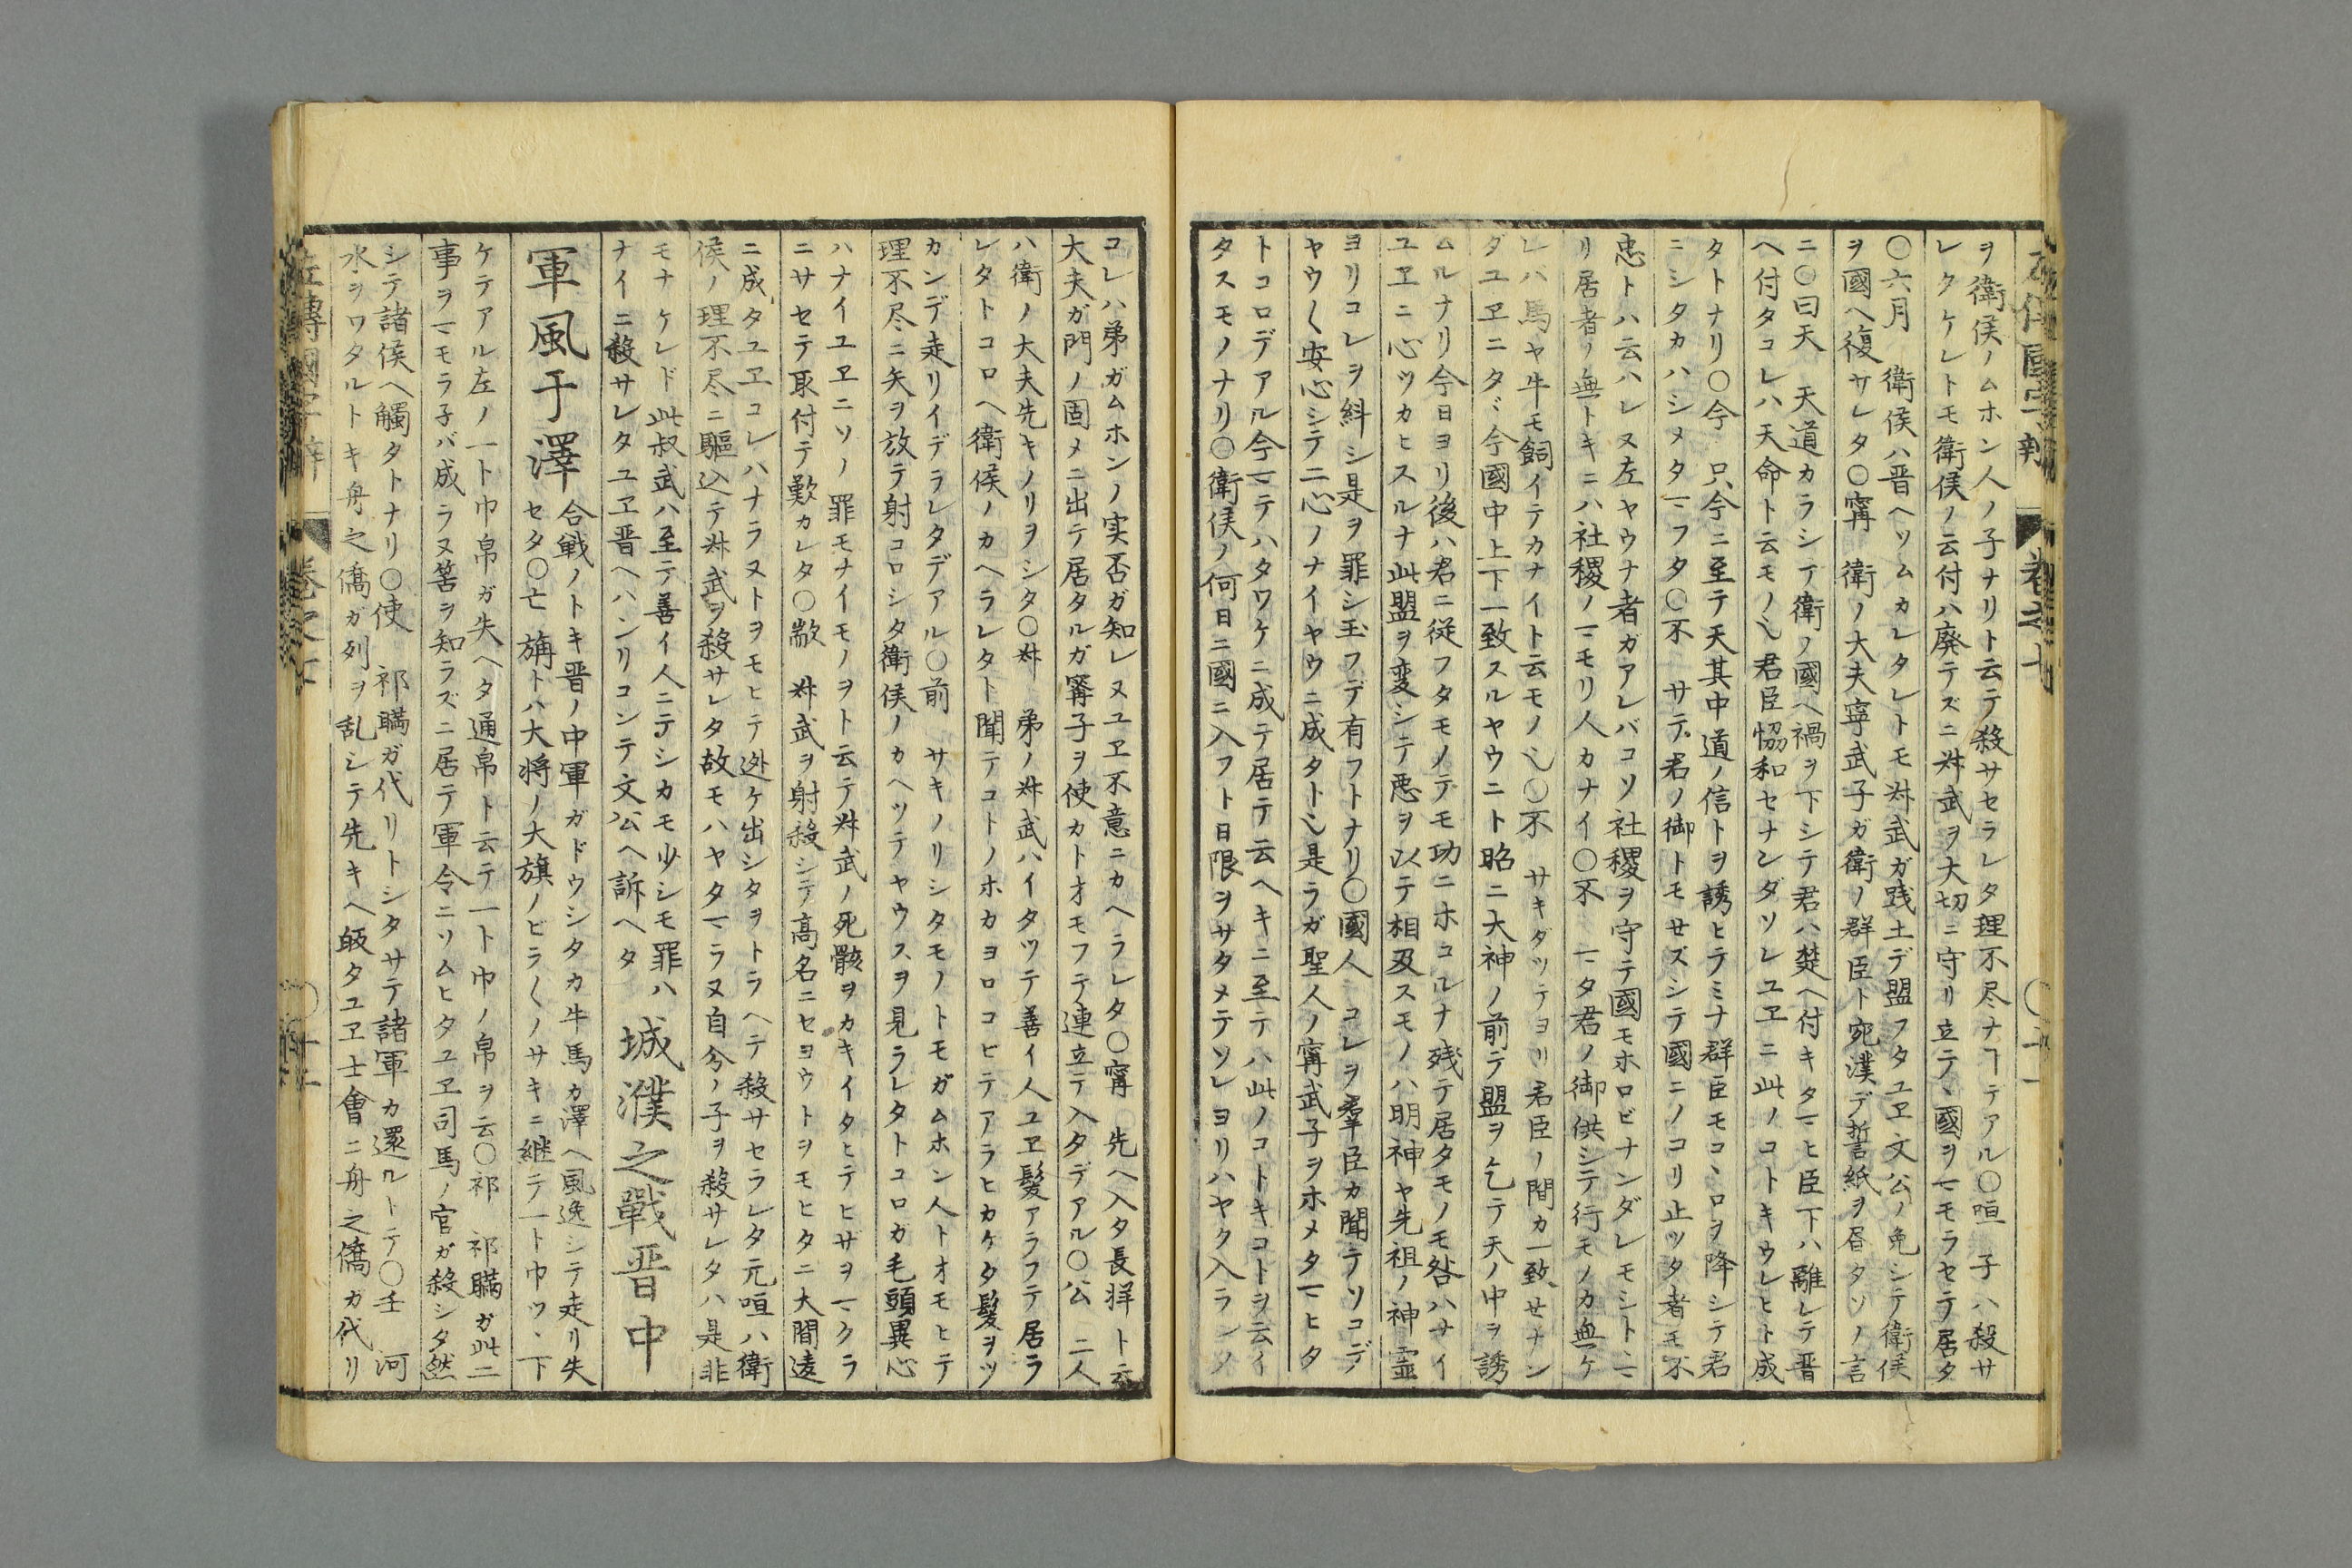 ヲ衛侯ノムホン人ノ子ナリト云テ殺サセラレタ理不尽ナヿテアル〇咺 子ハ殺サ
レクケレトモ衛侯ノ云付ハ廃テズニ𠦑武ヲ大切ニ守リ立テヽ國ヲヿモラセテ居タ
〇六月 衛侯ハ晋ヘソムカレタレトモ𠦑武ガ践土デ盟フタユヱ文公ノ免シテ衛侯
ヲ國ヘ復サレタ〇甯 衛ノ大夫寗武子ガ衛ノ群臣ト宛濮デ誓紙ヲ屠タソノ言
ニ〇曰天 天道カラシテ衛ノ國ヘ禍ヲ下シテ君ハ楚ヘ付キタマヒ臣下ハ離レテ晋
ヘ付タコレハ天命ト云モノ也君臣恊和セナンダソレユヱニ此ノコトキウレヒト成
タトナリ〇今 只今ニ至テ天其中道ノ信トヲ誘ヒラミナ群臣モコヽロヲ降シテ君
ニシタカハシメタマフタ〇不 サテ君ノ御トモセズシテ國ニノコリ止ツタ者モ不
忠トハ云ハレヌ左ヤウナ者ガアレバコソ社稷ヲ守テ國モホロビナンダレモシトマ
リ居者ノ無トキニハ社稷ノマモリ人カナイ〇不 マタ君ノ御供シテ行モノカ無ケ
レバ馬ヤ牛モ飼イテカナイト云モノ也〇不 サキダツテヨリ君臣ノ間カ一致せナン
ダユヱニタヾ今國中上下一致スルヤウニト昭ニ大神ノ前テ盟ヲ乞テ天ノ中ヲ誘
ムルナリ今日ヨリ後ハ君ニ従フタモノテモ功ニホコルナ残テ居タモノモ咎ハナイ
ユヱニ心ツカヒスルナ此盟ヲ変シテ悪ヲ以テ相及スモノハ明神ヤ先祖ノ神霊
ヨリコレヲ糾シ是ヲ罪シ玉フデ有フトナリ〇國人 コレヲ羣臣カ聞テソコデ
ヤウ〱安心シテ二心ノナイヤウニ成タト也是ラガ聖人ノ甯武子ヲホメタマヒタ
トコロデアル今マテハタワケニ成テ居テ云ヘキニ至テハ此ノコトキコトヲ云イ
タスモノナリ〇衛侯ノ何日ニ國ニ入フト日限ヲサタメテソレヨリハヤク入ランノ
コレハ弟ガムホンノ実否ガ知レヌユヱ不意ニカヘラレタ〇甯 先ヘ入タ長牂ト云
大夫ガ門ノ固メニ出テ居タルガ甯子ヲ使カトオモフテ連立テ入タデアル〇公 二人
ハ衛ノ大夫先キノリヲシタ〇𠦑 弟ノ𠦑武ハイタツテ善イ人ユヱ髪アラフテ居ラ
レタトコロヘ衛侯ノカヘラレタト聞テコトノホカヨロコビテアラヒカケタ髪ヲツ
カンデ走リイデラレタデアル〇前 サキノリシタモノトモガムホン人トオモヒテ
理不尽ニ矢ヲ放テ射コロシタ衛侯ノカヘツテヤウスヲ見ラレタトコロカ毛頭異心
ハナイユヱニソノ罪モナイモノヲト云テ𠦑武ノ死骸ヲカキイタヒテヒザヲマクラ
ニサセテ取付テ歎カレタ〇歂 𠦑武ヲ射殺シテ高名ニセヨウトヲモヒタニ大間違
ニ成タユヱコレハナラヌトヲモヒテ迯ケ出シタヲトラヘテ殺サセラレタ元咺ハ衛
侯ノ理不尽ニ驅込テ𠦑武ヲ殺サレタ故モハヤタマラヌ自分ノ子ヲ殺サレタハ是非
モナケレド此叔武ハ至テ善イ人ニテシカモ少シモ罪ハ
ナイニ殺サレタユヱ晋ヘハンリコンテ文公ヘ訴ヘタ
城濮之戰晋中
軍風于澤
合戦ノトキ晋ノ中軍ガドウシタカ牛馬カ澤ヘ風逸シテ走リ失
セタ〇亡 旃トハ大将ノ大旗ノビラ〱ノサキニ継テ一ト巾ツヽ下
ケテアル左ノ一ト巾帛ガ失ヘタ通帛ト云テ一ト巾ノ帛ヲ云〇祁 祁瞞ガ此二
事ヲマモラ子バ成ラヌ筈ヲ知ラズニ居テ軍令ニソムヒタユヱ司馬ノ官ガ殺シタ然
シテ諸侯ヘ觸タトナリ〇使 祁瞞ガ代リトシタサテ諸軍カ還ルトテ〇壬 河
水ヲワタルトキ舟之僑ガ列ヲ乱シテ先キヘ皈タユヱ士會ニ舟之僑カ代リ